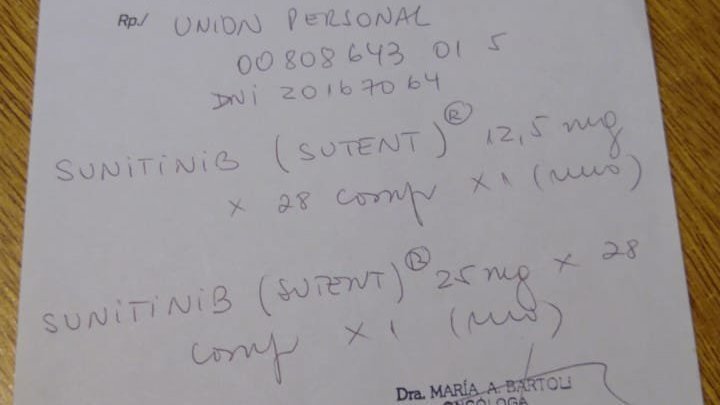 Rp./ UNION PERSONAL
00808643 01 5
DNI 20167064
SUNITINIB (SUTENT)® 12,5 mg
x 28 comp x 1 (uno)
SUNITINIB (SUTENT)® 25 mg x 28
comp x 1 (uno)
Dra. MARÍA A. BARTOLI
ONCÓLOGA